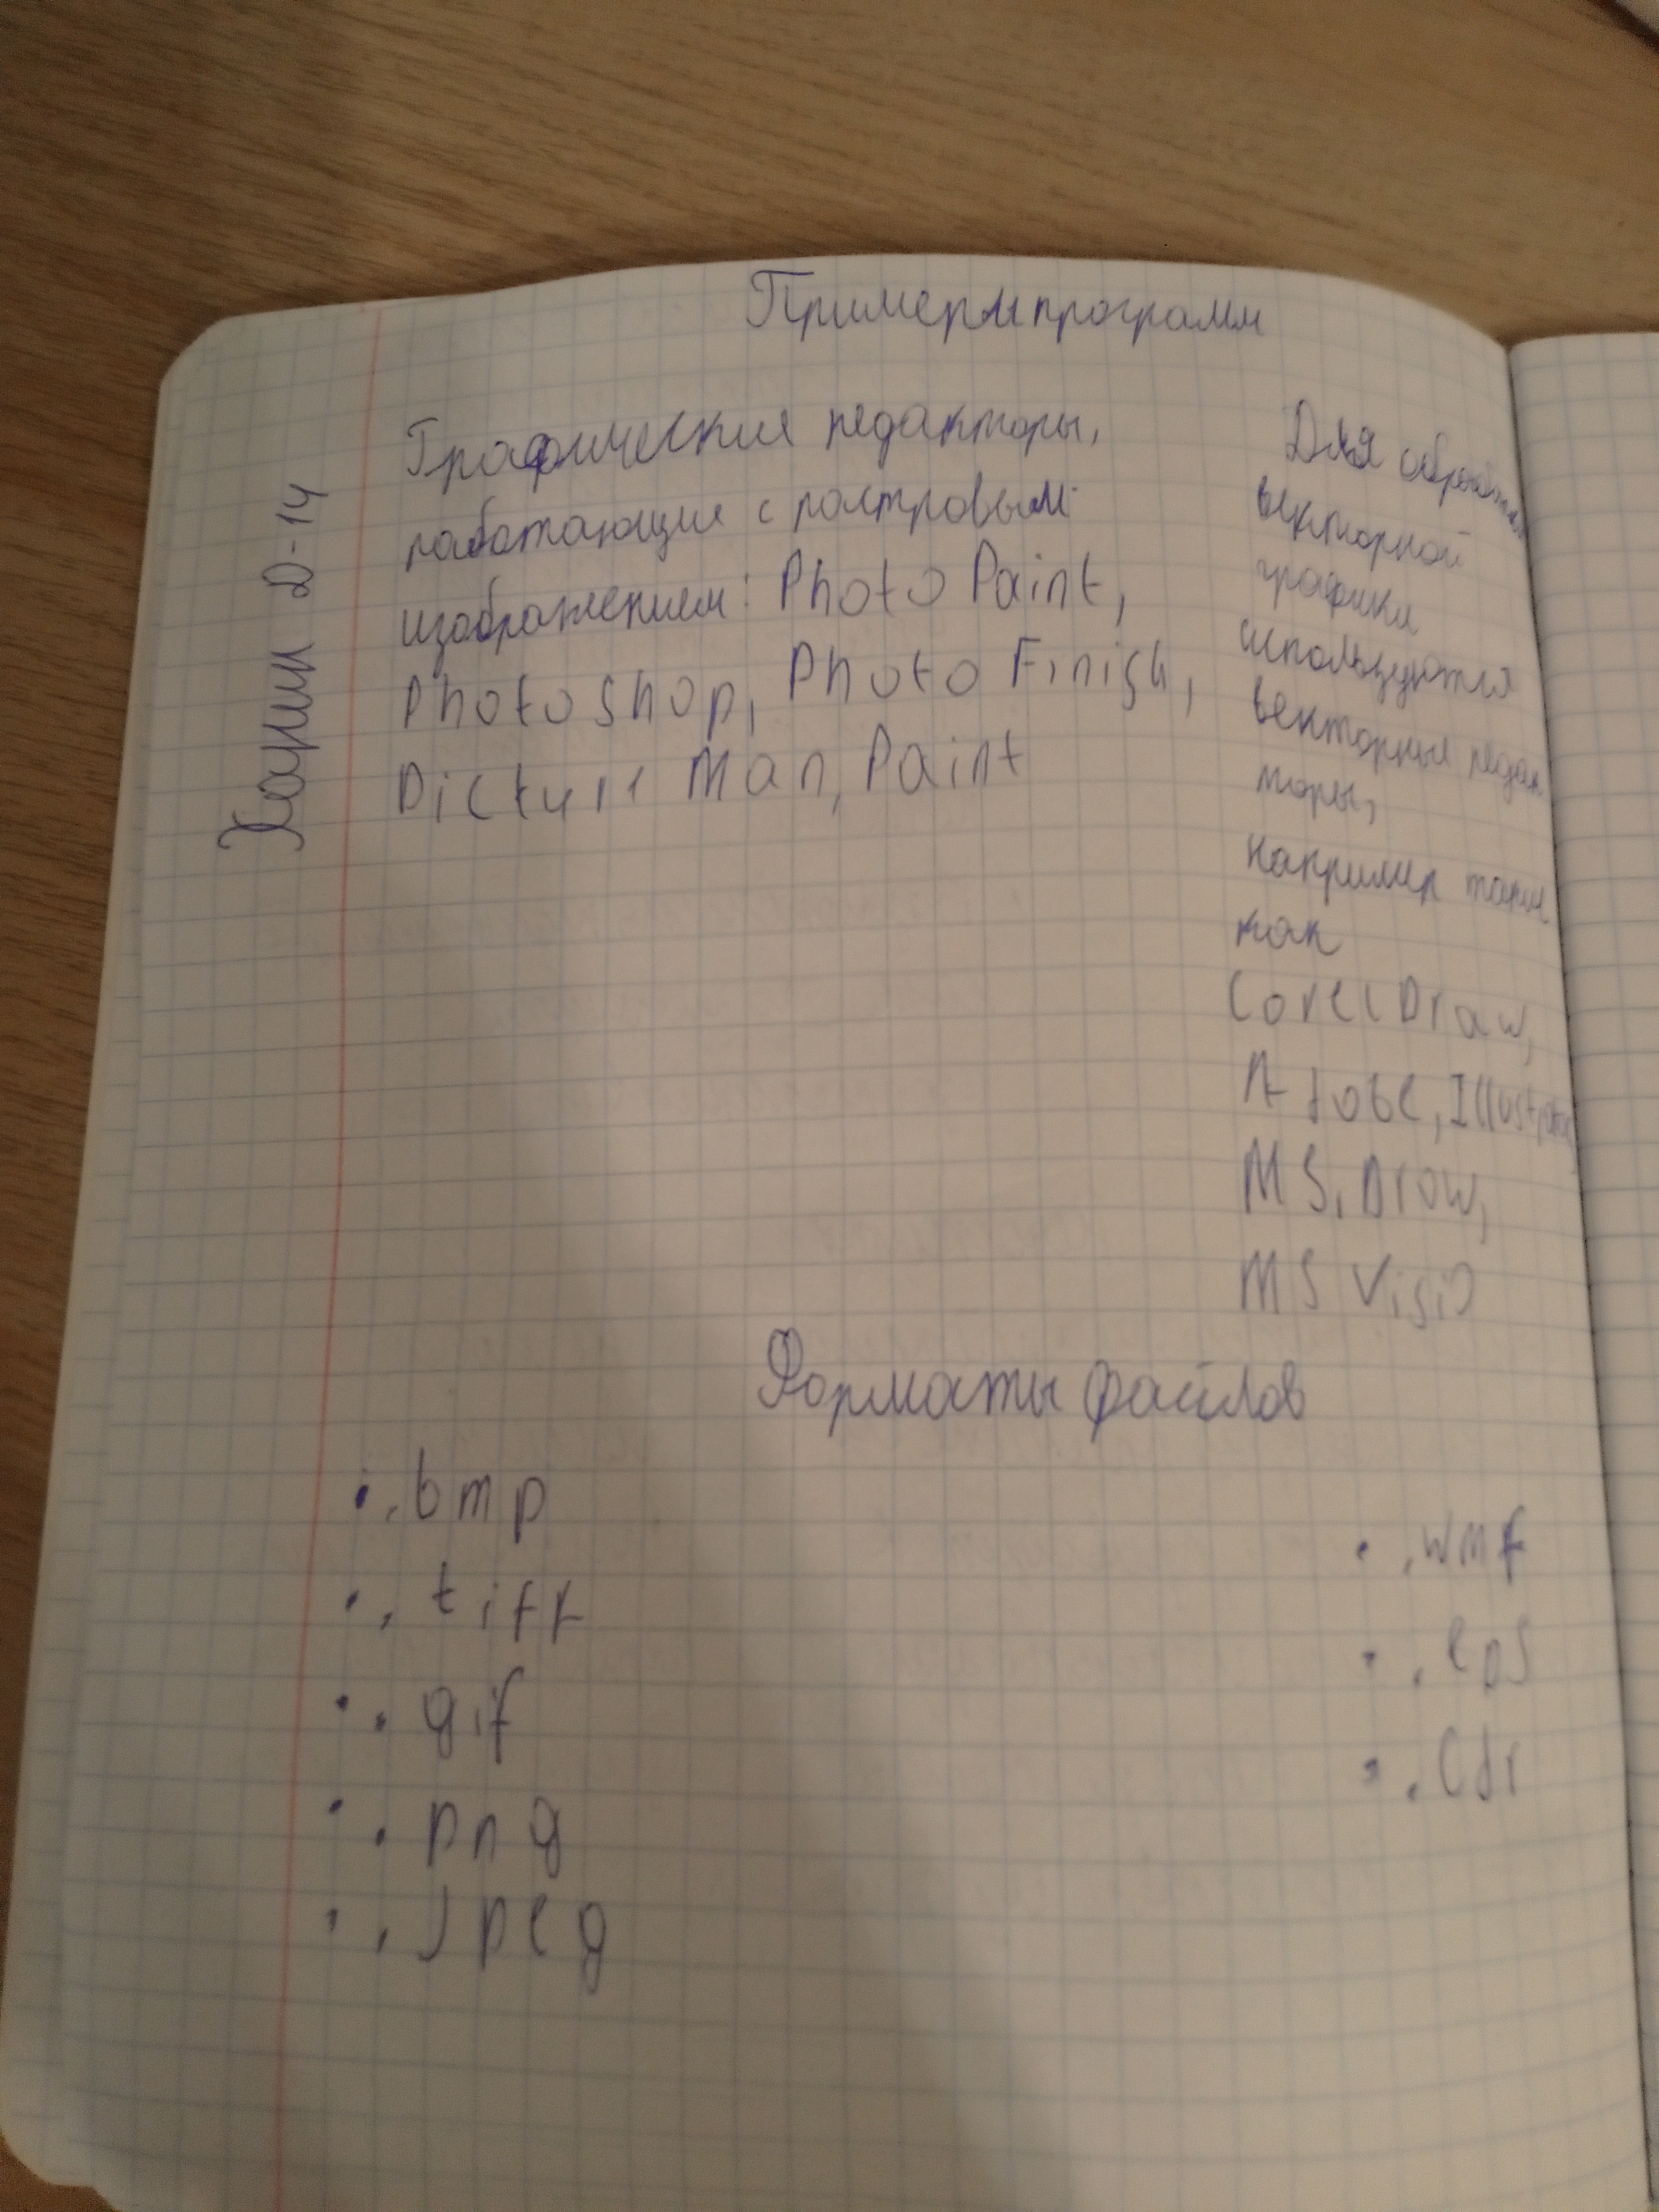 Примеры программ
Графические редакторы,
работающие с растровым
изображением: Photo Paint,
Photo Shop, Photo Finish,
Picture Man, Paint
Д-14
Для обработки
векторной
графики
используются
векторные редак
торы,
например такие
как
Corel Draw,
Adobe, Illustrator
MS. Draw,
MS Visio
Форматы файлов
• .bmp
• .tiff
• .gif
• .png
• .Jpeg
• .wmf
• .eps
• .Cdr